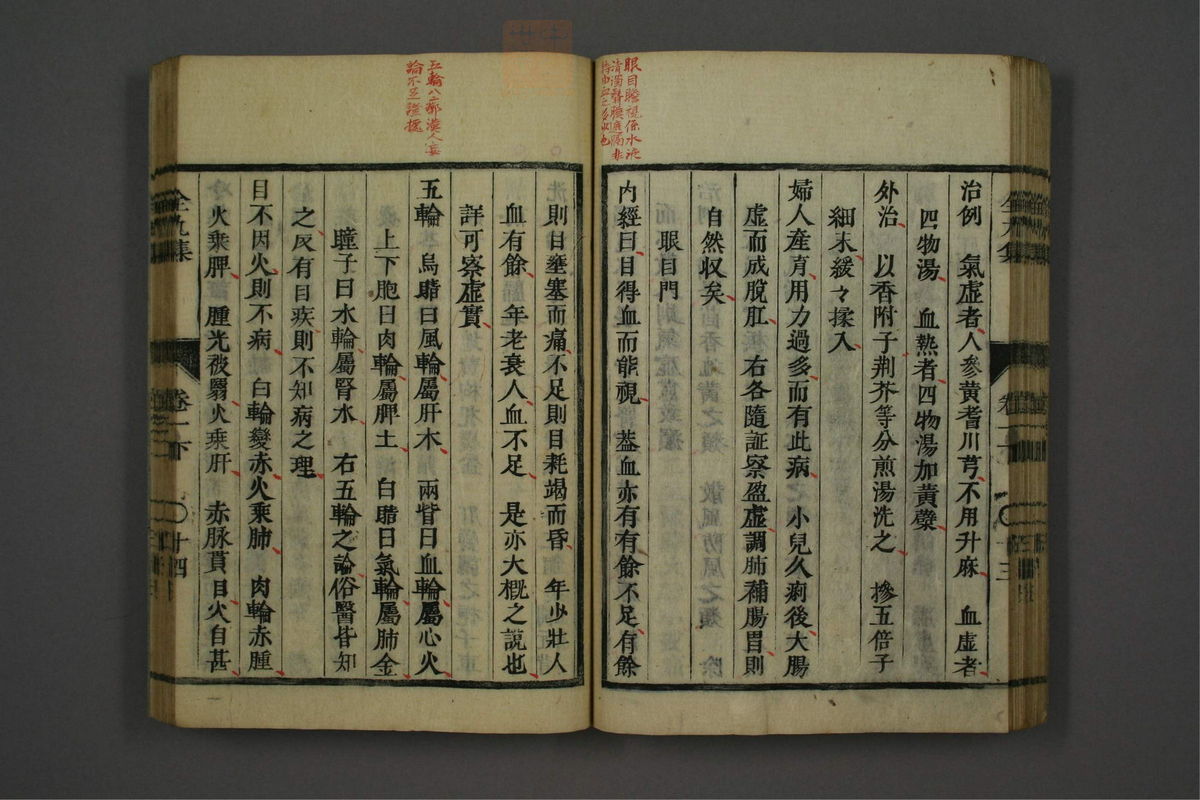 眼目瞻視係水液
清濁
五輪八廓漢人妄
論不足證據
治例 氣虛者人參黃耆川芎不用升麻 血虛者
四物湯 血熱者四物湯加黃蘗
外治 以香附子荆芥等分煎湯洗之 摻五倍子
細末緩々揉入
婦人產育用力過多而有此病 小兒久痢後大腸
虛而成脫肛 右各隨証察盈虛調肺補腸胃則
自然收矣
眼目門
內經曰目得血而能視 葢血亦有有餘不足有餘
全九集 卷一下 十三
則目壅塞而痛不足則目耗竭而昏 年少壯人
血有餘 年老衰人血不足 是亦大槪之說也
詳可察虛實
五輪 烏睛曰風輪屬肝木 兩眥曰血輪屬心火
上下胞曰肉輪屬脾土 白睛曰氣輪屬肺金
瞳子曰水輪屬腎水 右五輪之論俗醫皆知
之反有目疾則不知病之理
目不因火則不病 白輪變赤火乘肺 肉輪赤腫
火乘脾 瞳光被翳火乘肝 赤脉貫目火自甚
全九集 卷一下 十四